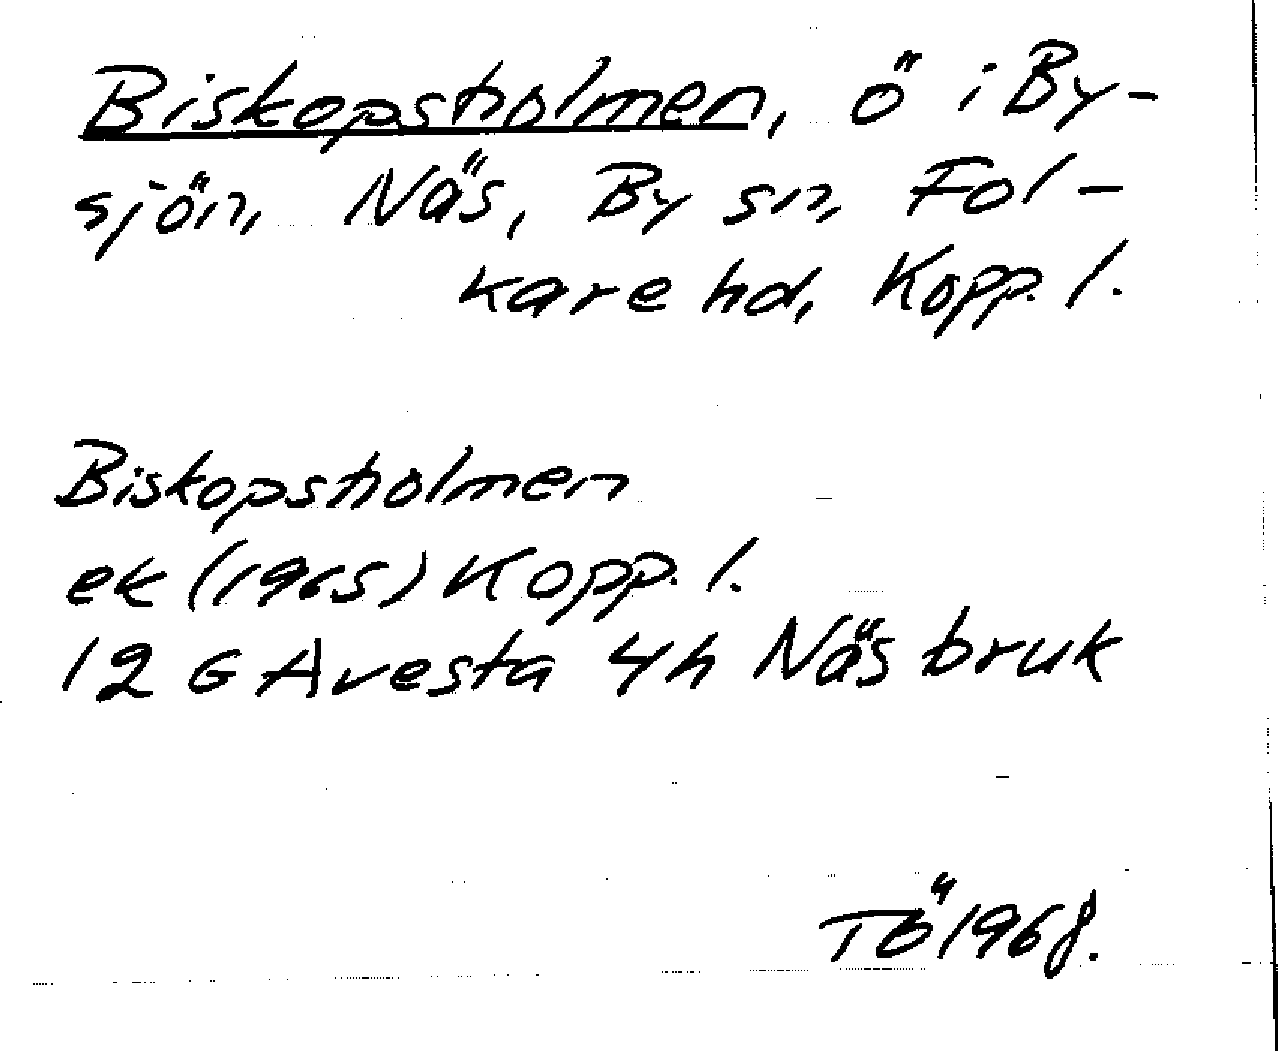 Biskopsholmen, ö i By-
sjön, Näs, By sn, Fol-
kare hd, Kopp. l.
Biskopsholmen
ek (1965) Kopp. l.
12 G Avesta 4h Näs bruk
TÖ 1968.